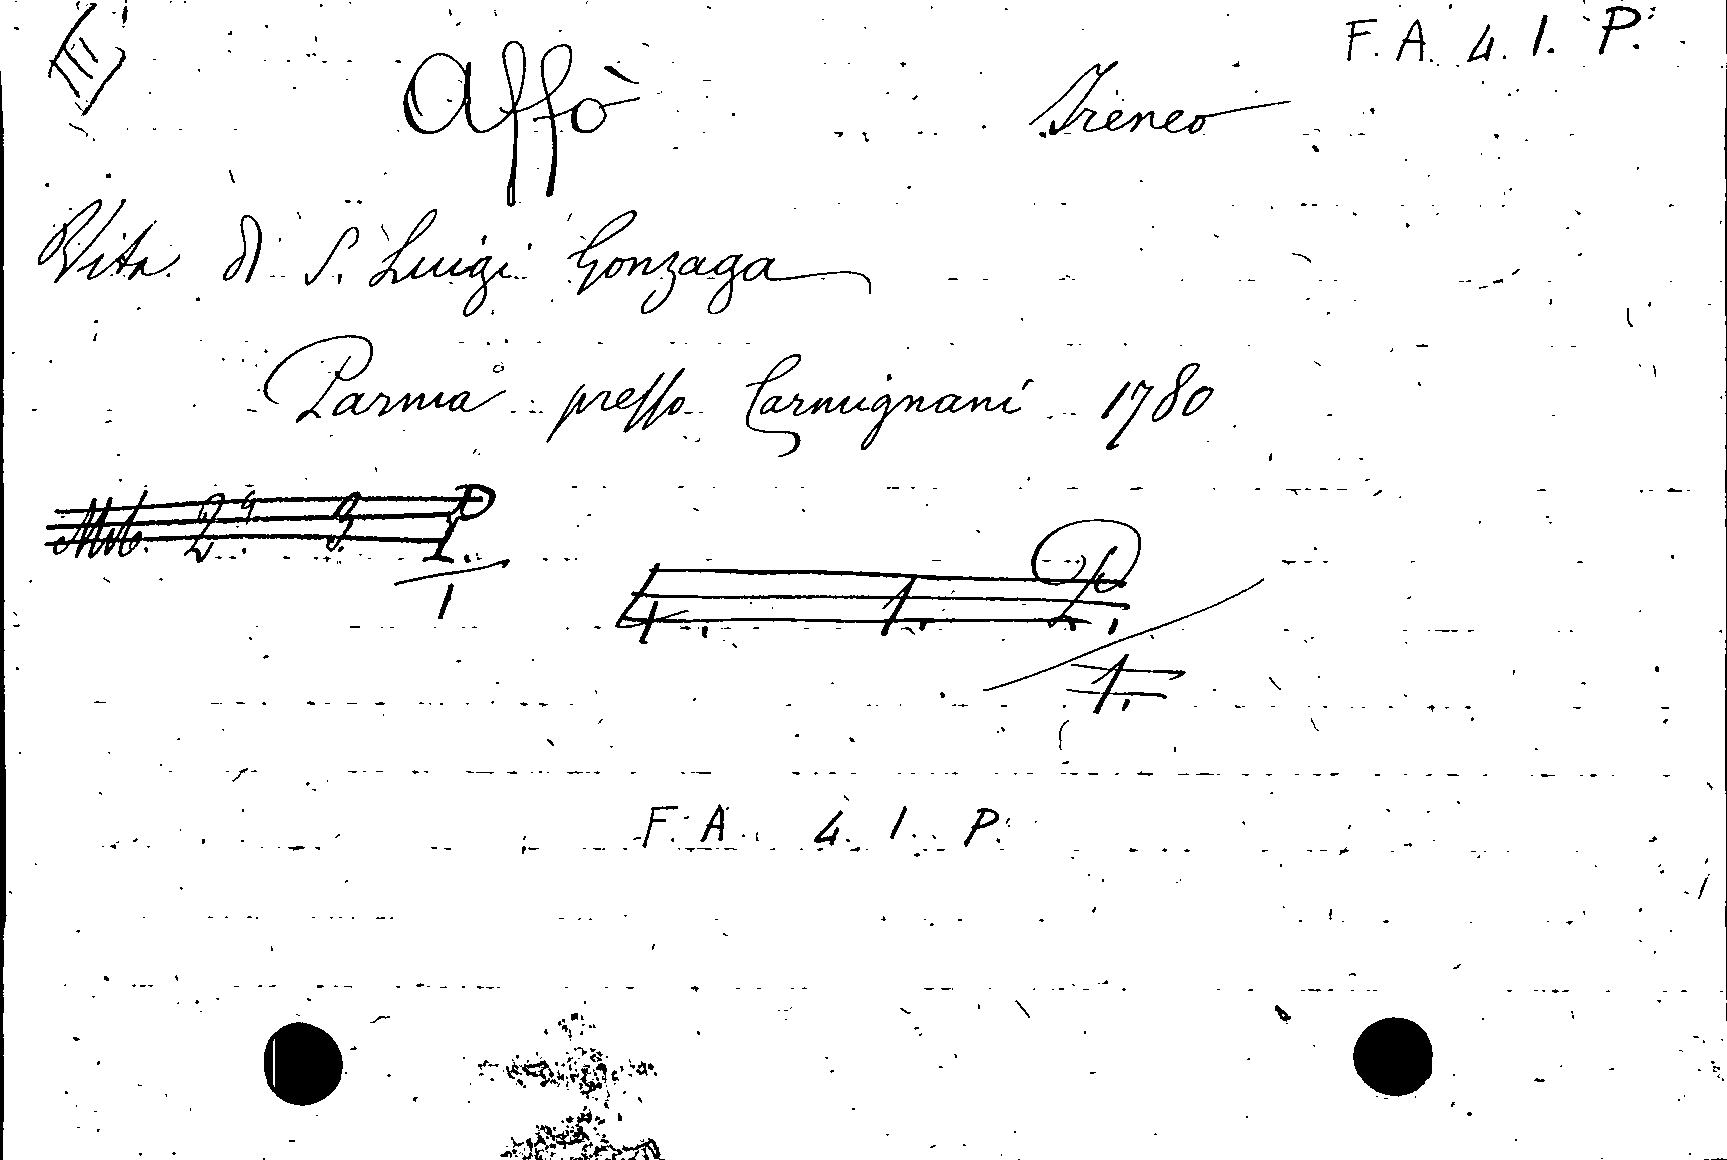 F. A. 4. 1. P.
Affò Ireneo
Vita di S. Luigi Gonzaga
Parma presso Carmignani 1780
2ª 3 P
1.
1
4. 1. P
2.
1.
F. A. 4. 1. P.